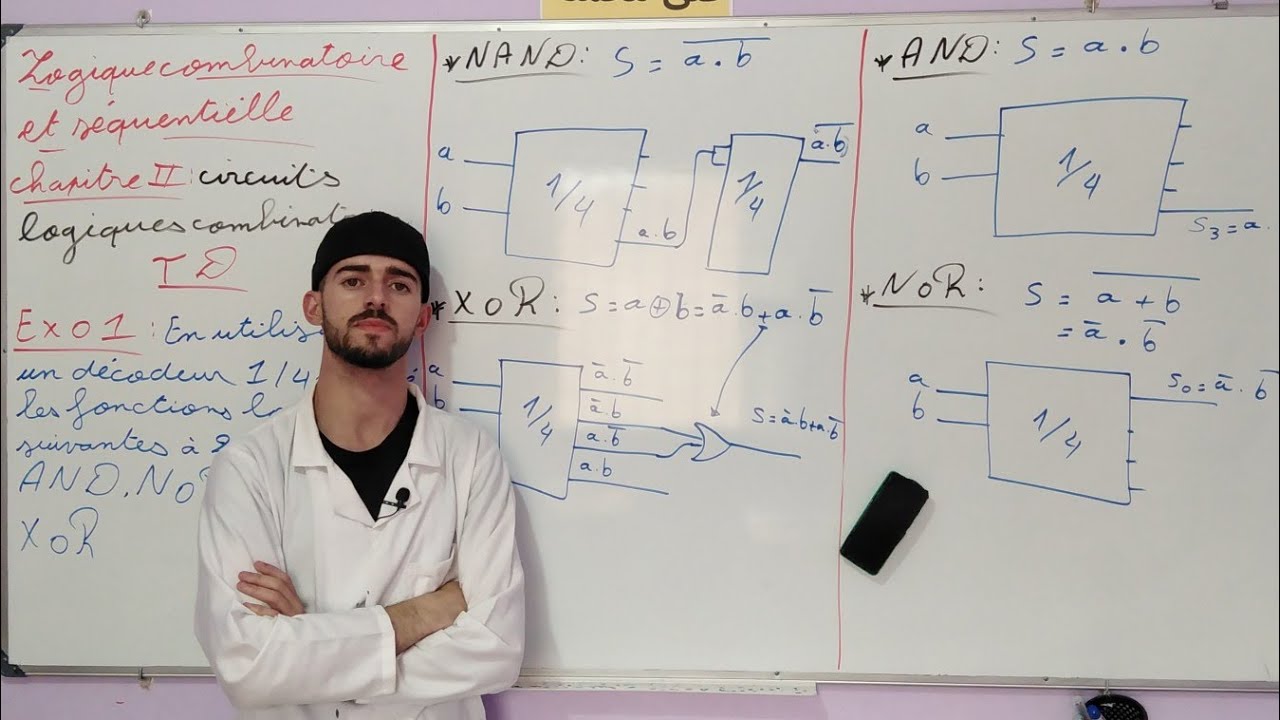 Logique combinatoire
et séquentielle
chapitre II : circuits
logiques
TD
Exo1 : En
un décodeur 1/4
les fonctions
suivantes à
AND, NoR
XoR
* NAND: S = \overline{a.b}
a
b
1/4
a.b
1/4
\overline{a.b}
* XoR: S = a ⊕ b = \overline{a}.b + a.\overline{b}
a
b
1/4
\overline{a}.\overline{b}
\overline{a}.b
a.\overline{b}
a.b
S = \overline{a}.b + a.\overline{b}
* AND: S = a.b
a
b
1/4
S₃ = a.
* NoR: S = \overline{a + b}
= \overline{a}.\overline{b}
a
b
1/4
S₀ = \overline{a}.\overline{b}